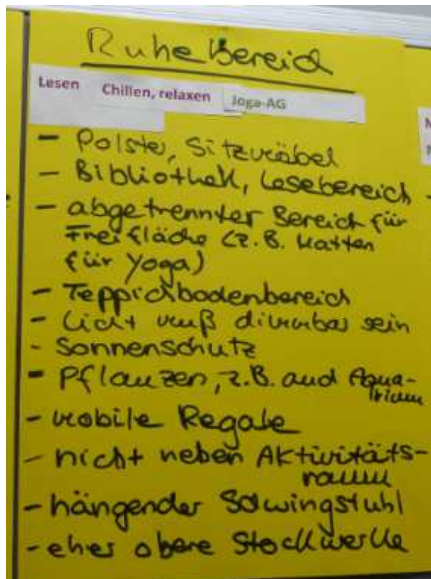 Ruhebereich
Lesen Chillen, relaxen Joga-AG
- Polster, Sitzmöbel
- Bibliothek, Lesebereich
- abgetrennter Bereich für
Freifläche (z.B. Matten
für Yoga)
- Teppichbodenbereich
- Licht muß dimmbar sein
- Sonnenschutz
- Pflanzen, z.B. auch Aqua-
rium
- mobile Regale
- nicht neben Aktivitäts-
raum
- hängender Schwingstuhl
- eher obere Stockwerke